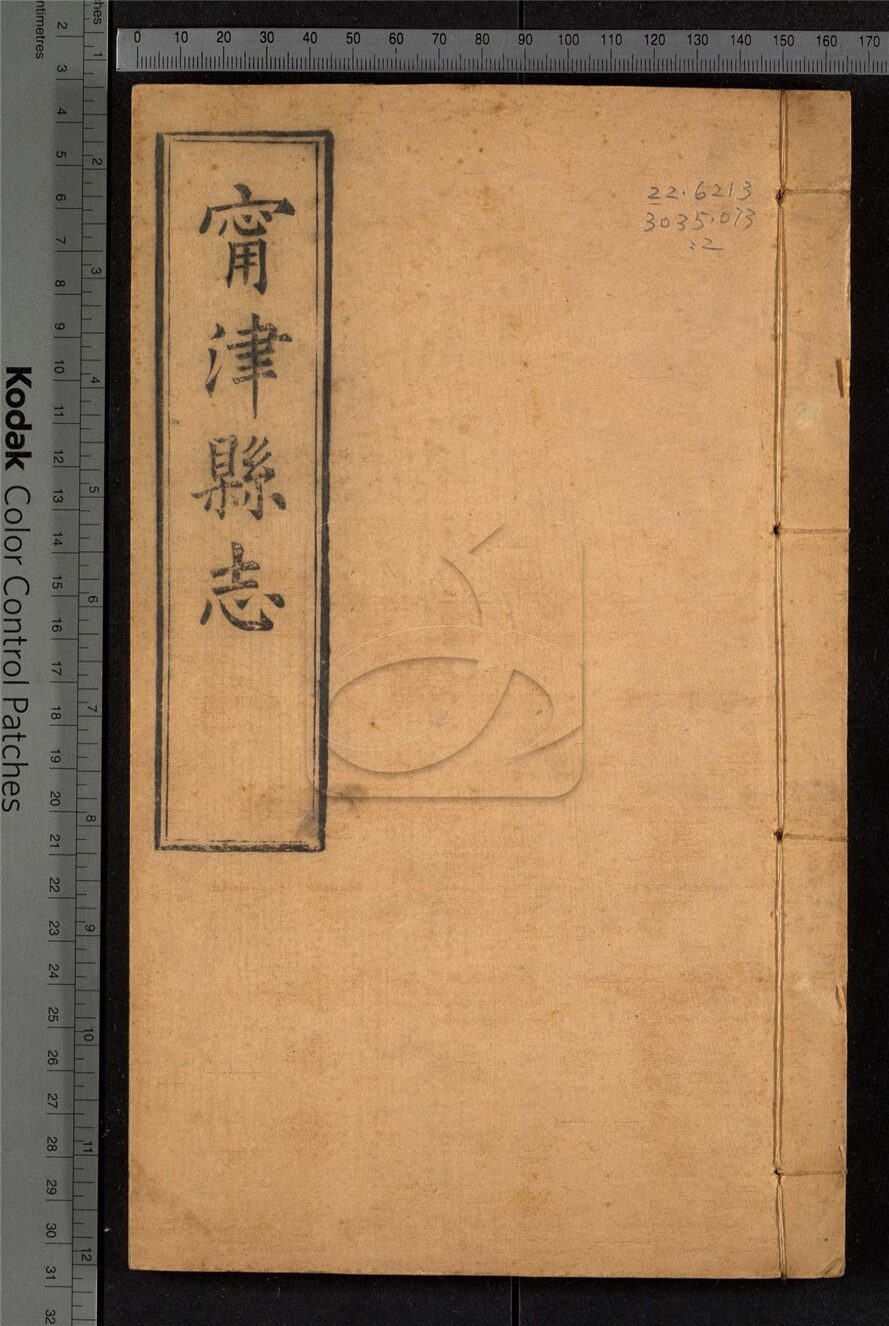 甯津縣志
22.6213
3035.073
:2
0 10 20 30 40 50 60 70 80 90 100 110 120 130 140 150 160 170
ches
1 2 3 4 5 6 7 8 9 10 11 12
ntimetres
2 3 4 5 6 7 8 9 10 11 12 13 14 15 16 17 18 19 20 21 22 23 24 25 26 27 28 29 30 31 32
Kodak Color Control Patches